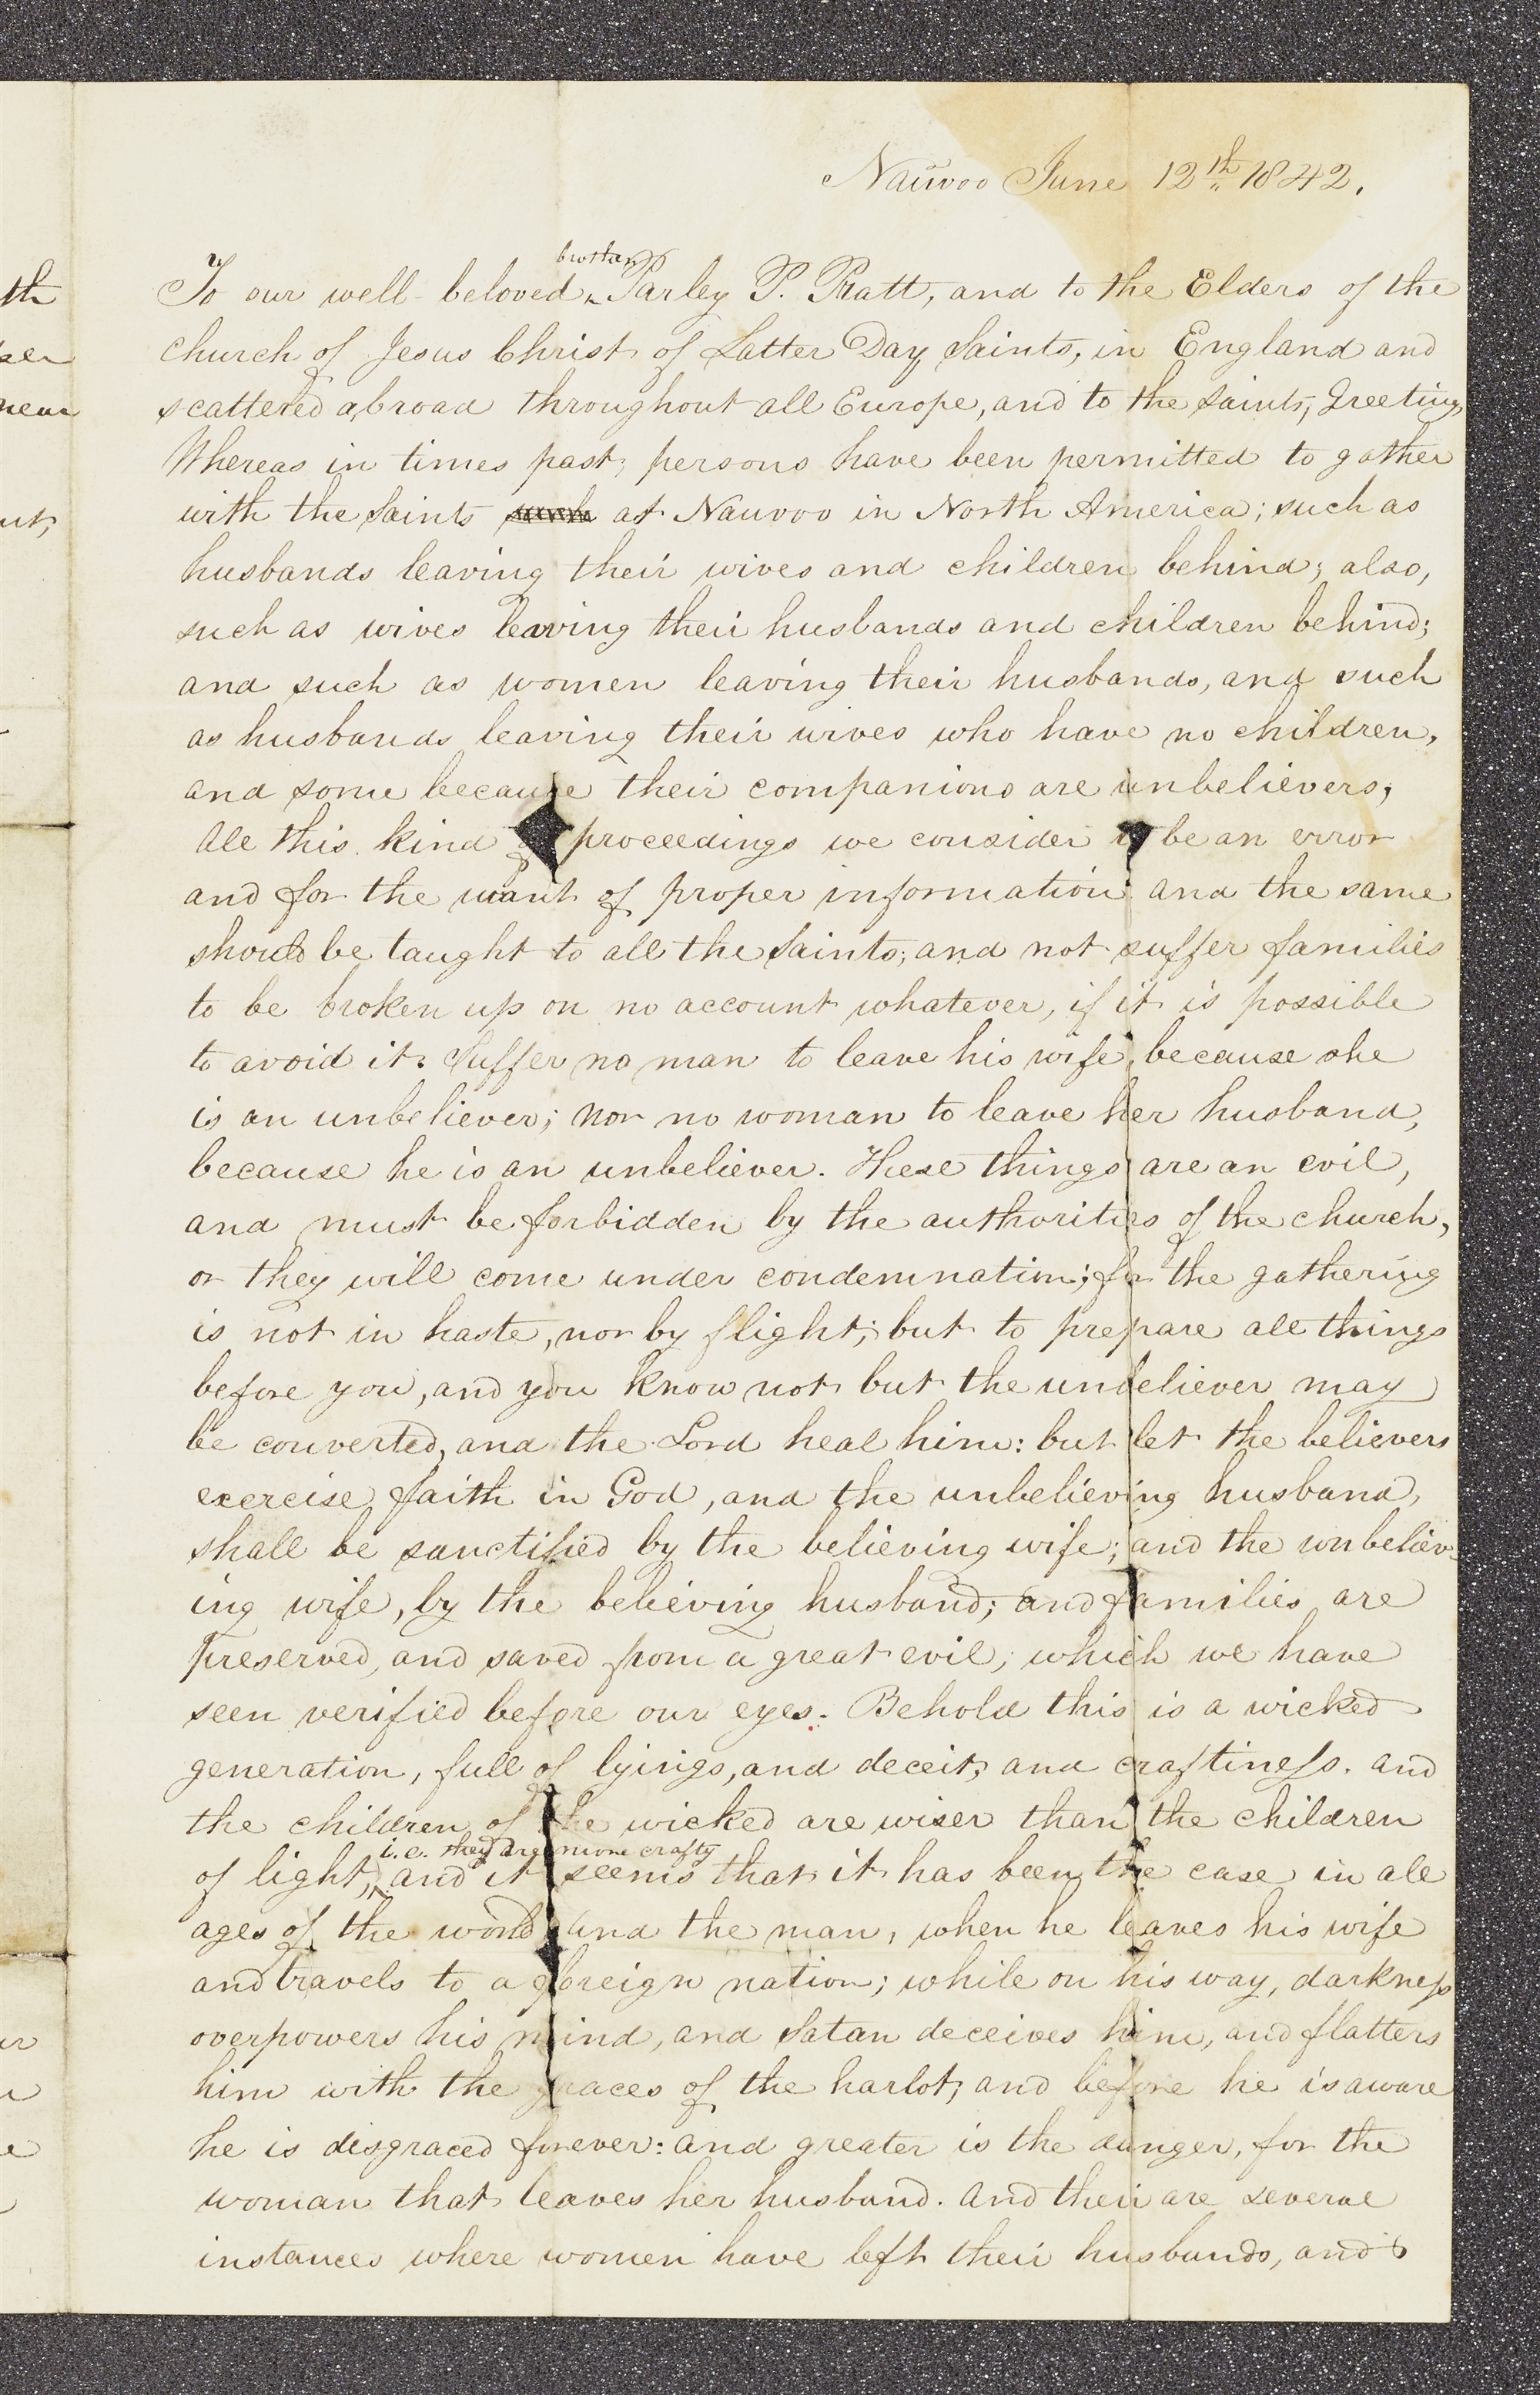 Nauvoo June 12th 1842.
brother
To our well-beloved ^ Parley P. Pratt, and to the Elders of the
church of Jesus Christ of Latter Day Saints, in England and
scattered abroad throughout all Europe, and to the Saints, Greeting,
Whereas in times past, persons have been permitted to gather
with the Saints at Nauvoo in North America; such as
husbands leaving their wives and children behind; also,
such as wives leaving their husbands and children behind;
and such as women leaving their husbands, and such
as husbands leaving their wives who have no children,
and some because their companions are unbelievers,
All this kind of proceedings we consider to be an error
and for the want of proper information and the same
should be taught to all the Saints, and not suffer families
to be broken up on no account whatever, if it is possible
to avoid it. Suffer no man to leave his wife, because she
is an unbeliever; nor no woman to leave her husband,
because he is an unbeliever. These things are an evil,
and must be forbidden by the authorities of the church,
or they will come under condemnation; for the gathering
is not in haste, nor by flight; but to prepare all things
before you, and you know not but the unbeliever may
be converted, and the Lord heal him: but let the believers
exercise faith in God, and the unbelieving husband,
shall be sanctified by the believing wife; and the unbeliev-
ing wife, by the believing husband; and families are
preserved, and saved from a great evil; which we have
seen verified before our eyes. Behold this is a wicked
generation, full of lyings, and deceit, and craftiness. and
the children of the wicked are wiser than the children
i.e. they are more crafty
of light, ^ and it seems that it has been the case in all
ages of the world and the man, when he leaves his wife
and travels to a foreign nation; while on his way, darkness
overpowers his mind, and Satan deceives him, and flatters
him with the graces of the harlot, and before he is aware
he is disgraced forever: and greater is the danger, for the
woman that leaves her husband. And their are several
instances where women have left their husbands, and
th
near